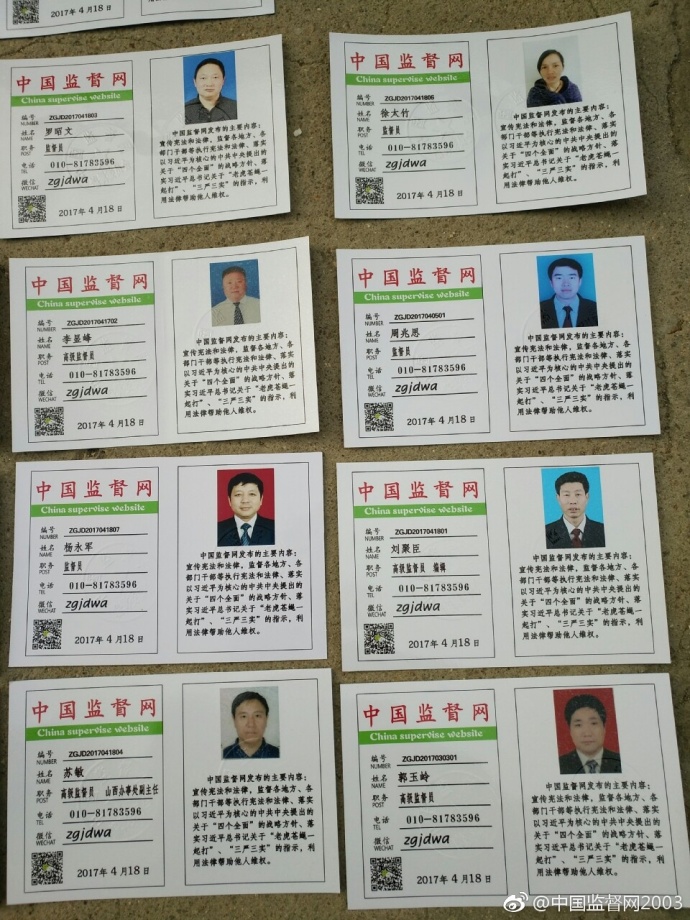 2017年4月18日
中国监督网
China supervise website
编号 ZGJD2017041803
NUMBER
姓名 罗昭文
NAME
职务 监督员
POST
电话 010-81783596
TEL
微信 zgjdwa
WECHAT
2017年4月18日
中国监督网发布的主要内容：
宣传宪法和法律，监督各地方、各
部门干部等执行宪法和法律、落实
以习近平为核心的中共中央提出的
关于“四个全面”的战略方针、落
实习近平总书记关于“老虎苍蝇一
起打”、“三严三实”的指示，利
用法律帮助他人维权。
中国监督网
China supervise website
编号 ZGJD2017041806
NUMBER
姓名 徐大竹
NAME
职务 监督员
POST
电话 010-81783596
TEL
微信 zgjdwa
WECHAT
2017年4月18日
中国监督网发布的主要内容：
宣传宪法和法律，监督各地方、各
部门干部等执行宪法和法律、落实
以习近平为核心的中共中央提出的
关于“四个全面”的战略方针、落
实习近平总书记关于“老虎苍蝇一
起打”、“三严三实”的指示，利
用法律帮助他人维权。
中国监督网
China supervise website
编号 ZGJD2017041702
NUMBER
姓名 李显峰
NAME
职务 高级监督员
POST
电话 010-81783596
TEL
微信 zgjdwa
WECHAT
2017年4月18日
中国监督网发布的主要内容：
宣传宪法和法律，监督各地方、各
部门干部等执行宪法和法律、落实
以习近平为核心的中共中央提出的
关于“四个全面”的战略方针、落
实习近平总书记关于“老虎苍蝇一
起打”、“三严三实”的指示，利
用法律帮助他人维权。
中国监督网
China supervise website
编号 ZGJD2017040501
NUMBER
姓名 周兆恩
NAME
职务 监督员
POST
电话 010-81783596
TEL
微信 zgjdwa
WECHAT
2017年4月18日
中国监督网发布的主要内容：
宣传宪法和法律，监督各地方、各
部门干部等执行宪法和法律、落实
以习近平为核心的中共中央提出的
关于“四个全面”的战略方针、落
实习近平总书记关于“老虎苍蝇一
起打”、“三严三实”的指示，利
用法律帮助他人维权。
中国监督网
China supervise website
编号 ZGJD2017041807
NUMBER
姓名 杨永军
NAME
职务 监督员
POST
电话 010-81783596
TEL
微信 zgjdwa
WECHAT
2017年4月18日
中国监督网发布的主要内容：
宣传宪法和法律，监督各地方、各
部门干部等执行宪法和法律、落实
以习近平为核心的中共中央提出的
关于“四个全面”的战略方针、落
实习近平总书记关于“老虎苍蝇一
起打”、“三严三实”的指示，利
用法律帮助他人维权。
中国监督网
China supervise website
编号 ZGJD2017041801
NUMBER
姓名 刘聚臣
NAME
职务 高级监督员 编辑
POST
电话 010-81783596
TEL
微信 zgjdwa
WECHAT
2017年4月18日
中国监督网发布的主要内容：
宣传宪法和法律，监督各地方、各
部门干部等执行宪法和法律、落实
以习近平为核心的中共中央提出的
关于“四个全面”的战略方针、落
实习近平总书记关于“老虎苍蝇一
起打”、“三严三实”的指示，利
用法律帮助他人维权。
中国监督网
China supervise website
编号 ZGJD2017041804
NUMBER
姓名 苏敏
NAME
职务 高级监督员 山西办事处副主任
POST
电话 010-81783596
TEL
微信 zgjdwa
WECHAT
2017年4月18日
中国监督网发布的主要内容：
宣传宪法和法律，监督各地方、各
部门干部等执行宪法和法律、落实
以习近平为核心的中共中央提出的
关于“四个全面”的战略方针、落
实习近平总书记关于“老虎苍蝇一
起打”、“三严三实”的指示，利
用法律帮助他人维权。
中国监督网
China supervise website
编号 ZGJD2017030301
NUMBER
姓名 郭玉岭
NAME
职务 高级监督员
POST
电话 010-81783596
TEL
微信 zgjdwa
WECHAT
2017年4月18日
中国监督网发布的主要内容：
宣传宪法和法律，监督各地方、各
部门干部等执行宪法和法律、落实
以习近平为核心的中共中央提出的
关于“四个全面”的战略方针、落
实习近平总书记关于“老虎苍蝇一
起打”、“三严三实”的指示，利
用法律帮助他人维权。
@中国监督网2003